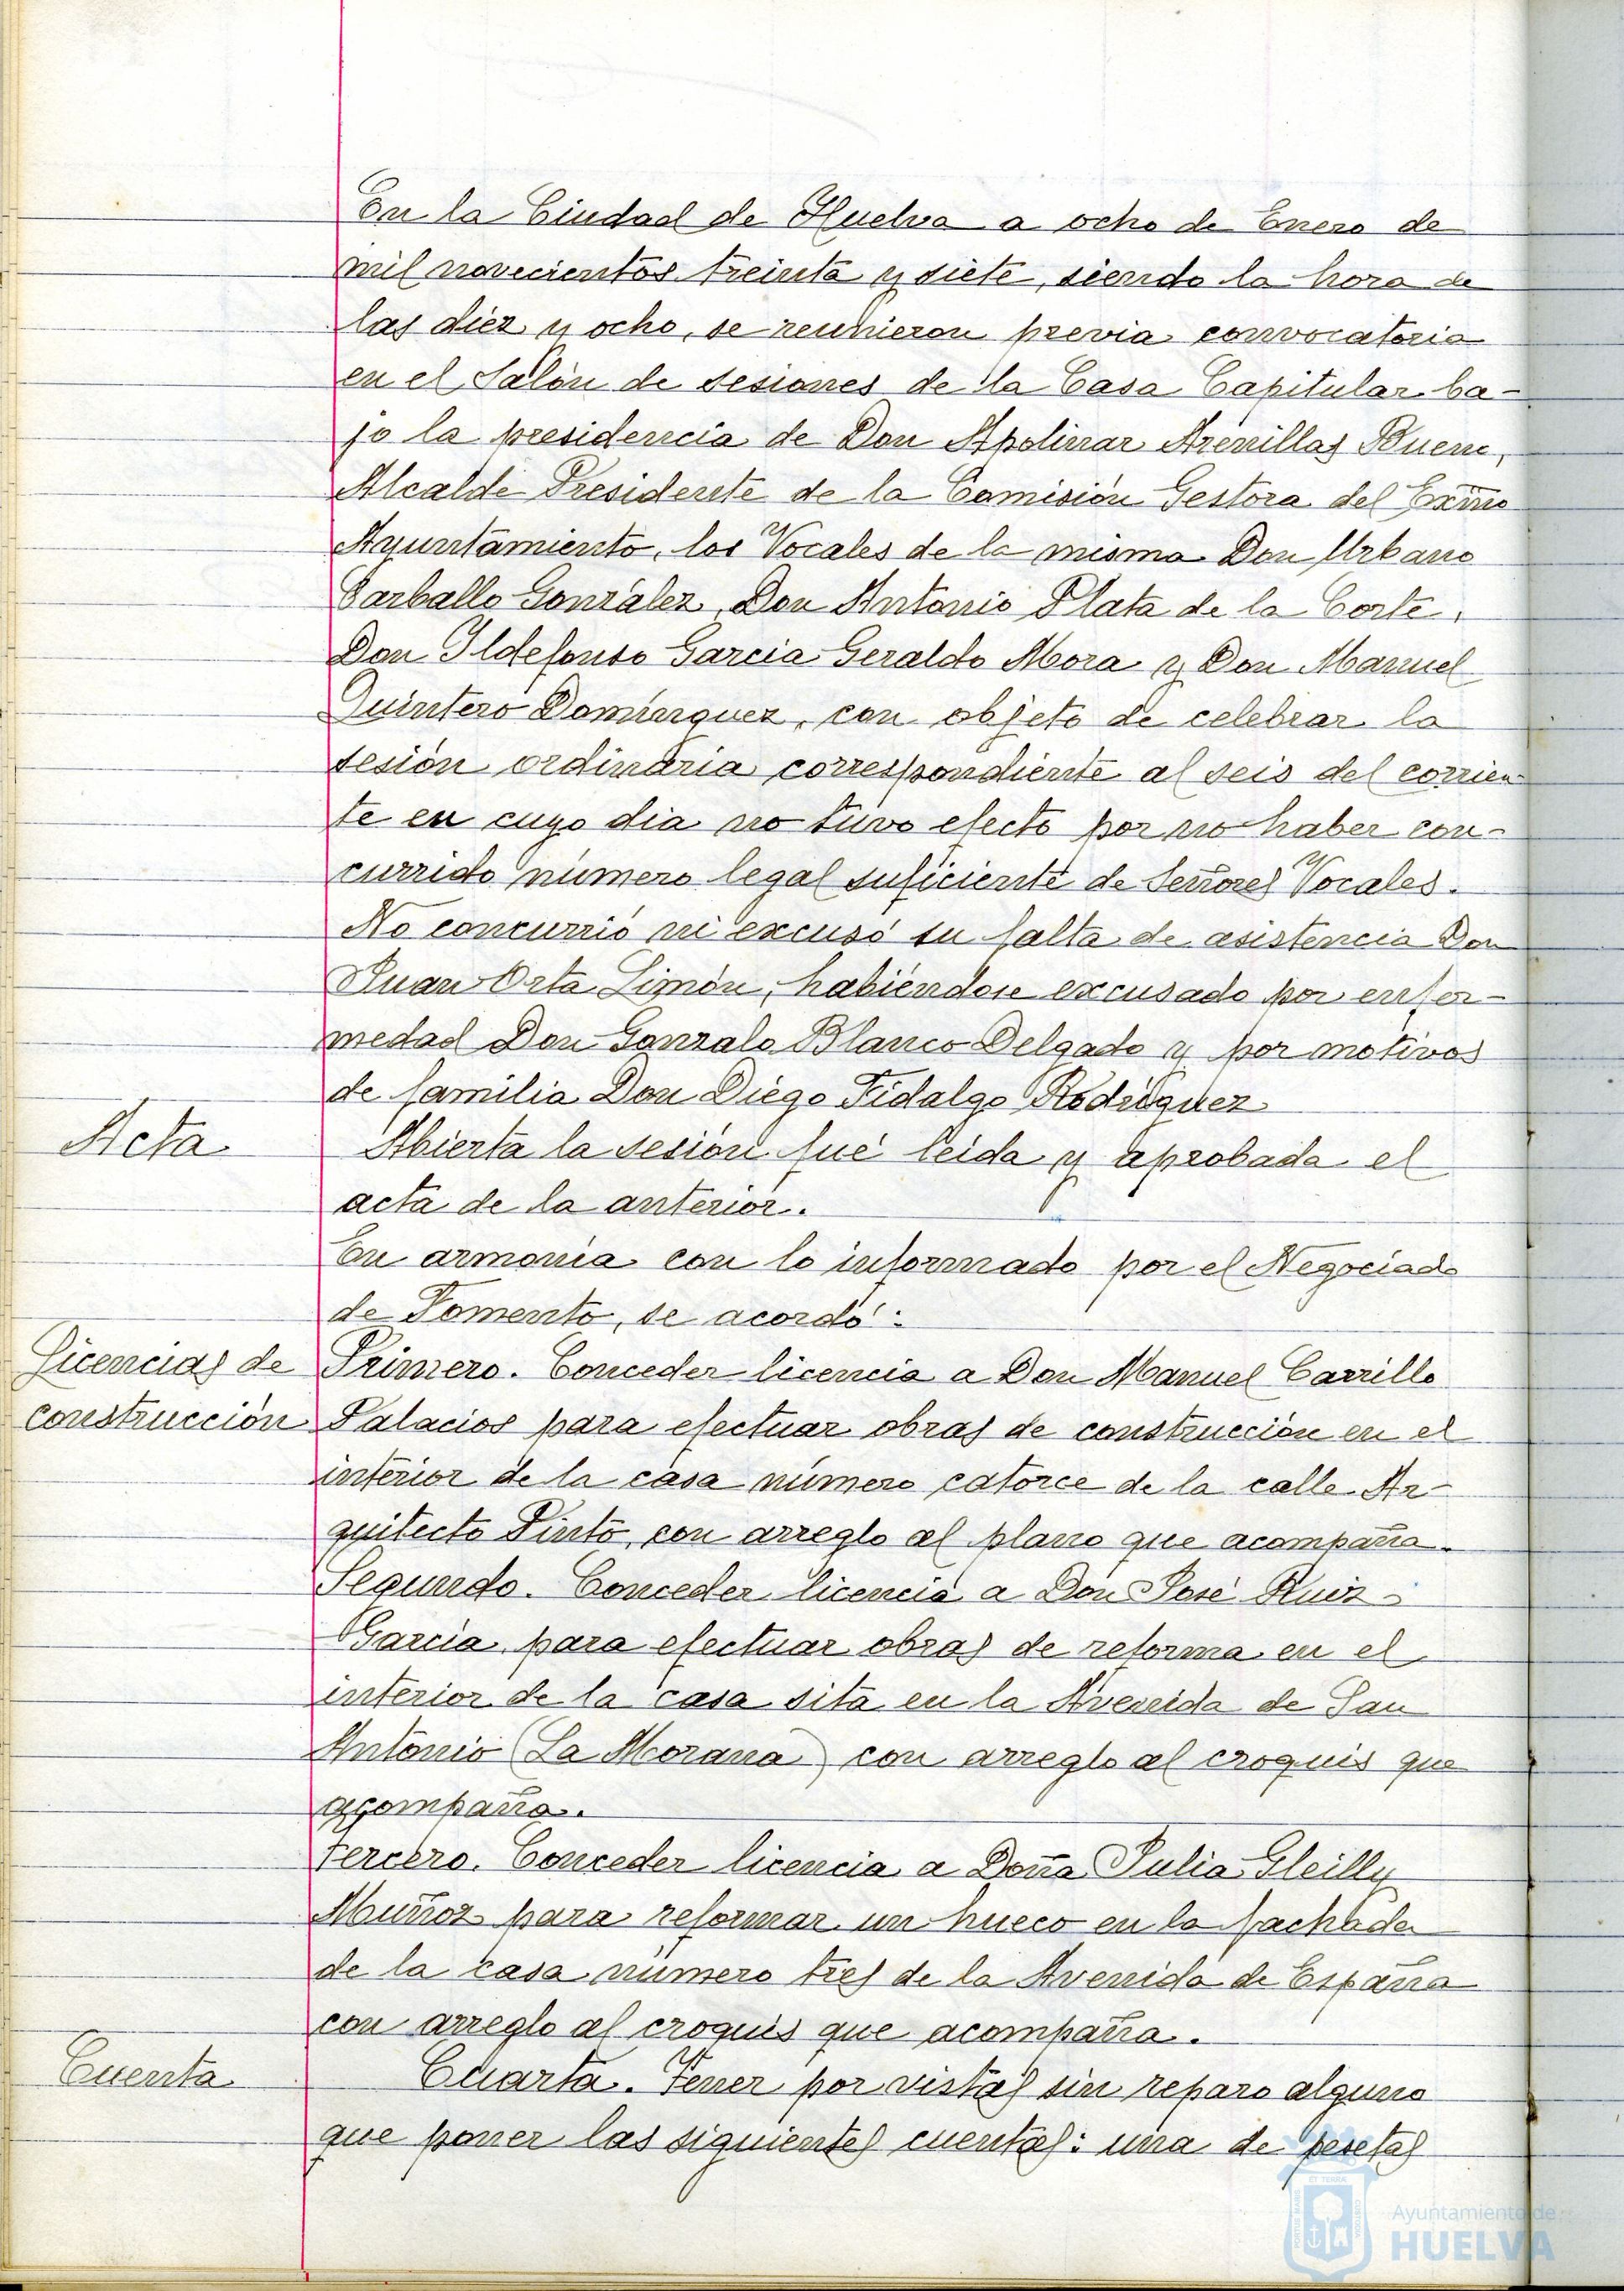 En la Ciudad de Huelva a ocho de Enero de
mil novecientos treinta y siete, siendo la hora de
las diez y ocho, se reunieron previa convocatoria
en el Salón de sesiones de la Casa Capitular ba-
jo la presidencia de Don Apolinar Arenillas Bueno,
Alcalde Presidente de la Comisión Gestora del Exmo
Ayuntamiento, los Vocales de la misma Don Urbano
Carballo González, Don Antonio Plata de la Corte,
Don Ildefonso Garcia Geraldo Mora y Don Manuel
Quintero Domínguez, con objeto de celebrar la
sesión ordinaria correspondiente al seis del corrien-
te en cuyo dia no tuvo efecto por no haber con-
currido número legal suficiente de Señores Vocales.
No concurrió ni excusó su falta de asistencia Don
Juan Orta Limón, habiéndose excusado por enfer-
medad Don Gonzalo Blanco Delgado y por motivos
de familia Don Diego Fidalgo Rodríguez
Acta
Abierta la sesión fué leida y aprobada el
acta de la anterior.
En armonia con lo informado por el Negociado
de Fomento, se acordó:
Licencias de
construcción
Primero. Conceder licencia a Don Manuel Carrillo
Palacios para efectuar obras de construcción en el
interior de la casa número catorce de la calle Ar-
quitecto Pinto, con arreglo al plano que acompaña.
Segundo. Conceder licencia a Don José Ruiz
Garcia, para efectuar obras de reforma en el
interior de la casa sita en la Avenida de San
Antonio (La Morana) con arreglo al croquis que
acompaña.
Tercero. Conceder licencia a Doña Julia Gleilly
Muñoz para reformar un hueco en la fachada
de la casa número tres de la Avenida de España
con arreglo al croquis que acompaña.
Cuenta
Cuarta. Tener por vistas sin reparo alguno
que poner las siguientes cuentas: una de pesetas
Ayuntamiento de
HUELVA